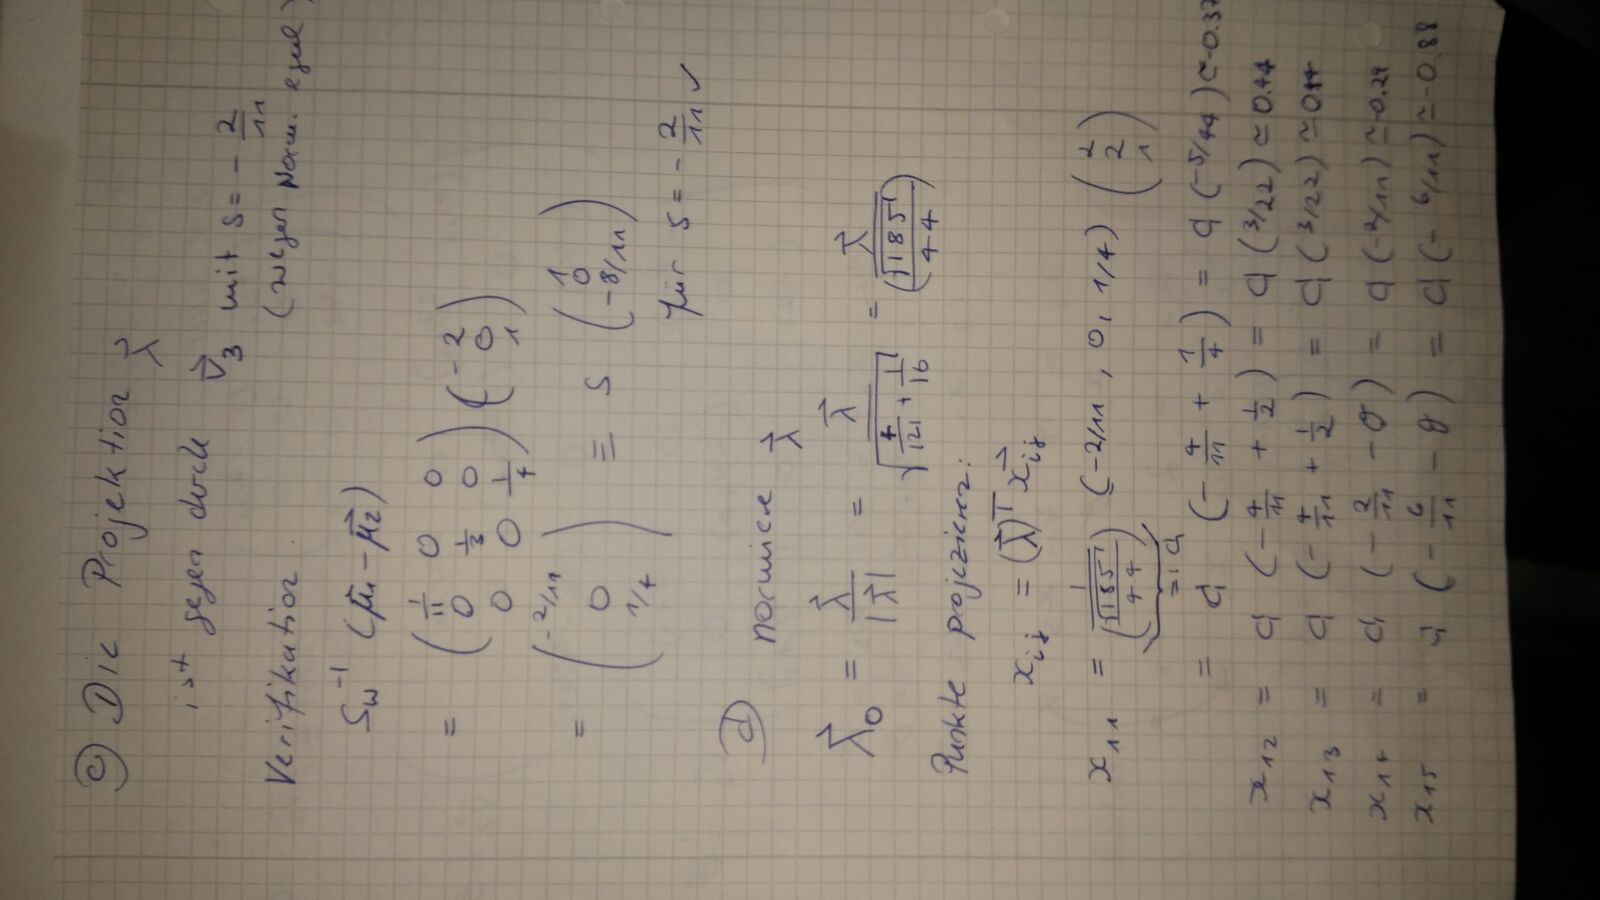 c) Die Projektion λ⃗
ist gegen durch v⃗₃ mit s = - 2/11
(wegen Norm. egal)
Verifikation.
S_w⁻¹ (μ⃗₁ - μ⃗₂)
= (1/11 0 0; 0 1/3 0; 0 0 1/4) (-2; 0; 1)
= (-2/11; 0; 1/4) ≡ s (1; 0; -8/11)
für s = - 2/11 ✓
d) normiere λ⃗
λ⃗₀ = λ⃗/|λ⃗| = λ⃗/√(4/121 + 1/16) = λ⃗/(√185/44)
Punkte projizieren:
x_ij = (λ⃗)ᵀ x⃗_ij
x₁₁ = 1/(√185/44) (-2/11, 0, 1/4) (2; 2; 1)
=: a
= a (- 4/11 + 1/4) = a (-5/44) ≃ -0.37
x₁₂ = a (- 4/11 + 1/2) = a (3/22) ≃ 0.44
x₁₃ = a (- 4/11 + 1/2) = a (3/22) ≃ 0.44
x₁₄ = a (- 2/11 - 0) = a (-2/11) ≃ -0.29
x₁₅ = a (- 6/11 - 0) = a (- 6/11) ≃ -0.88